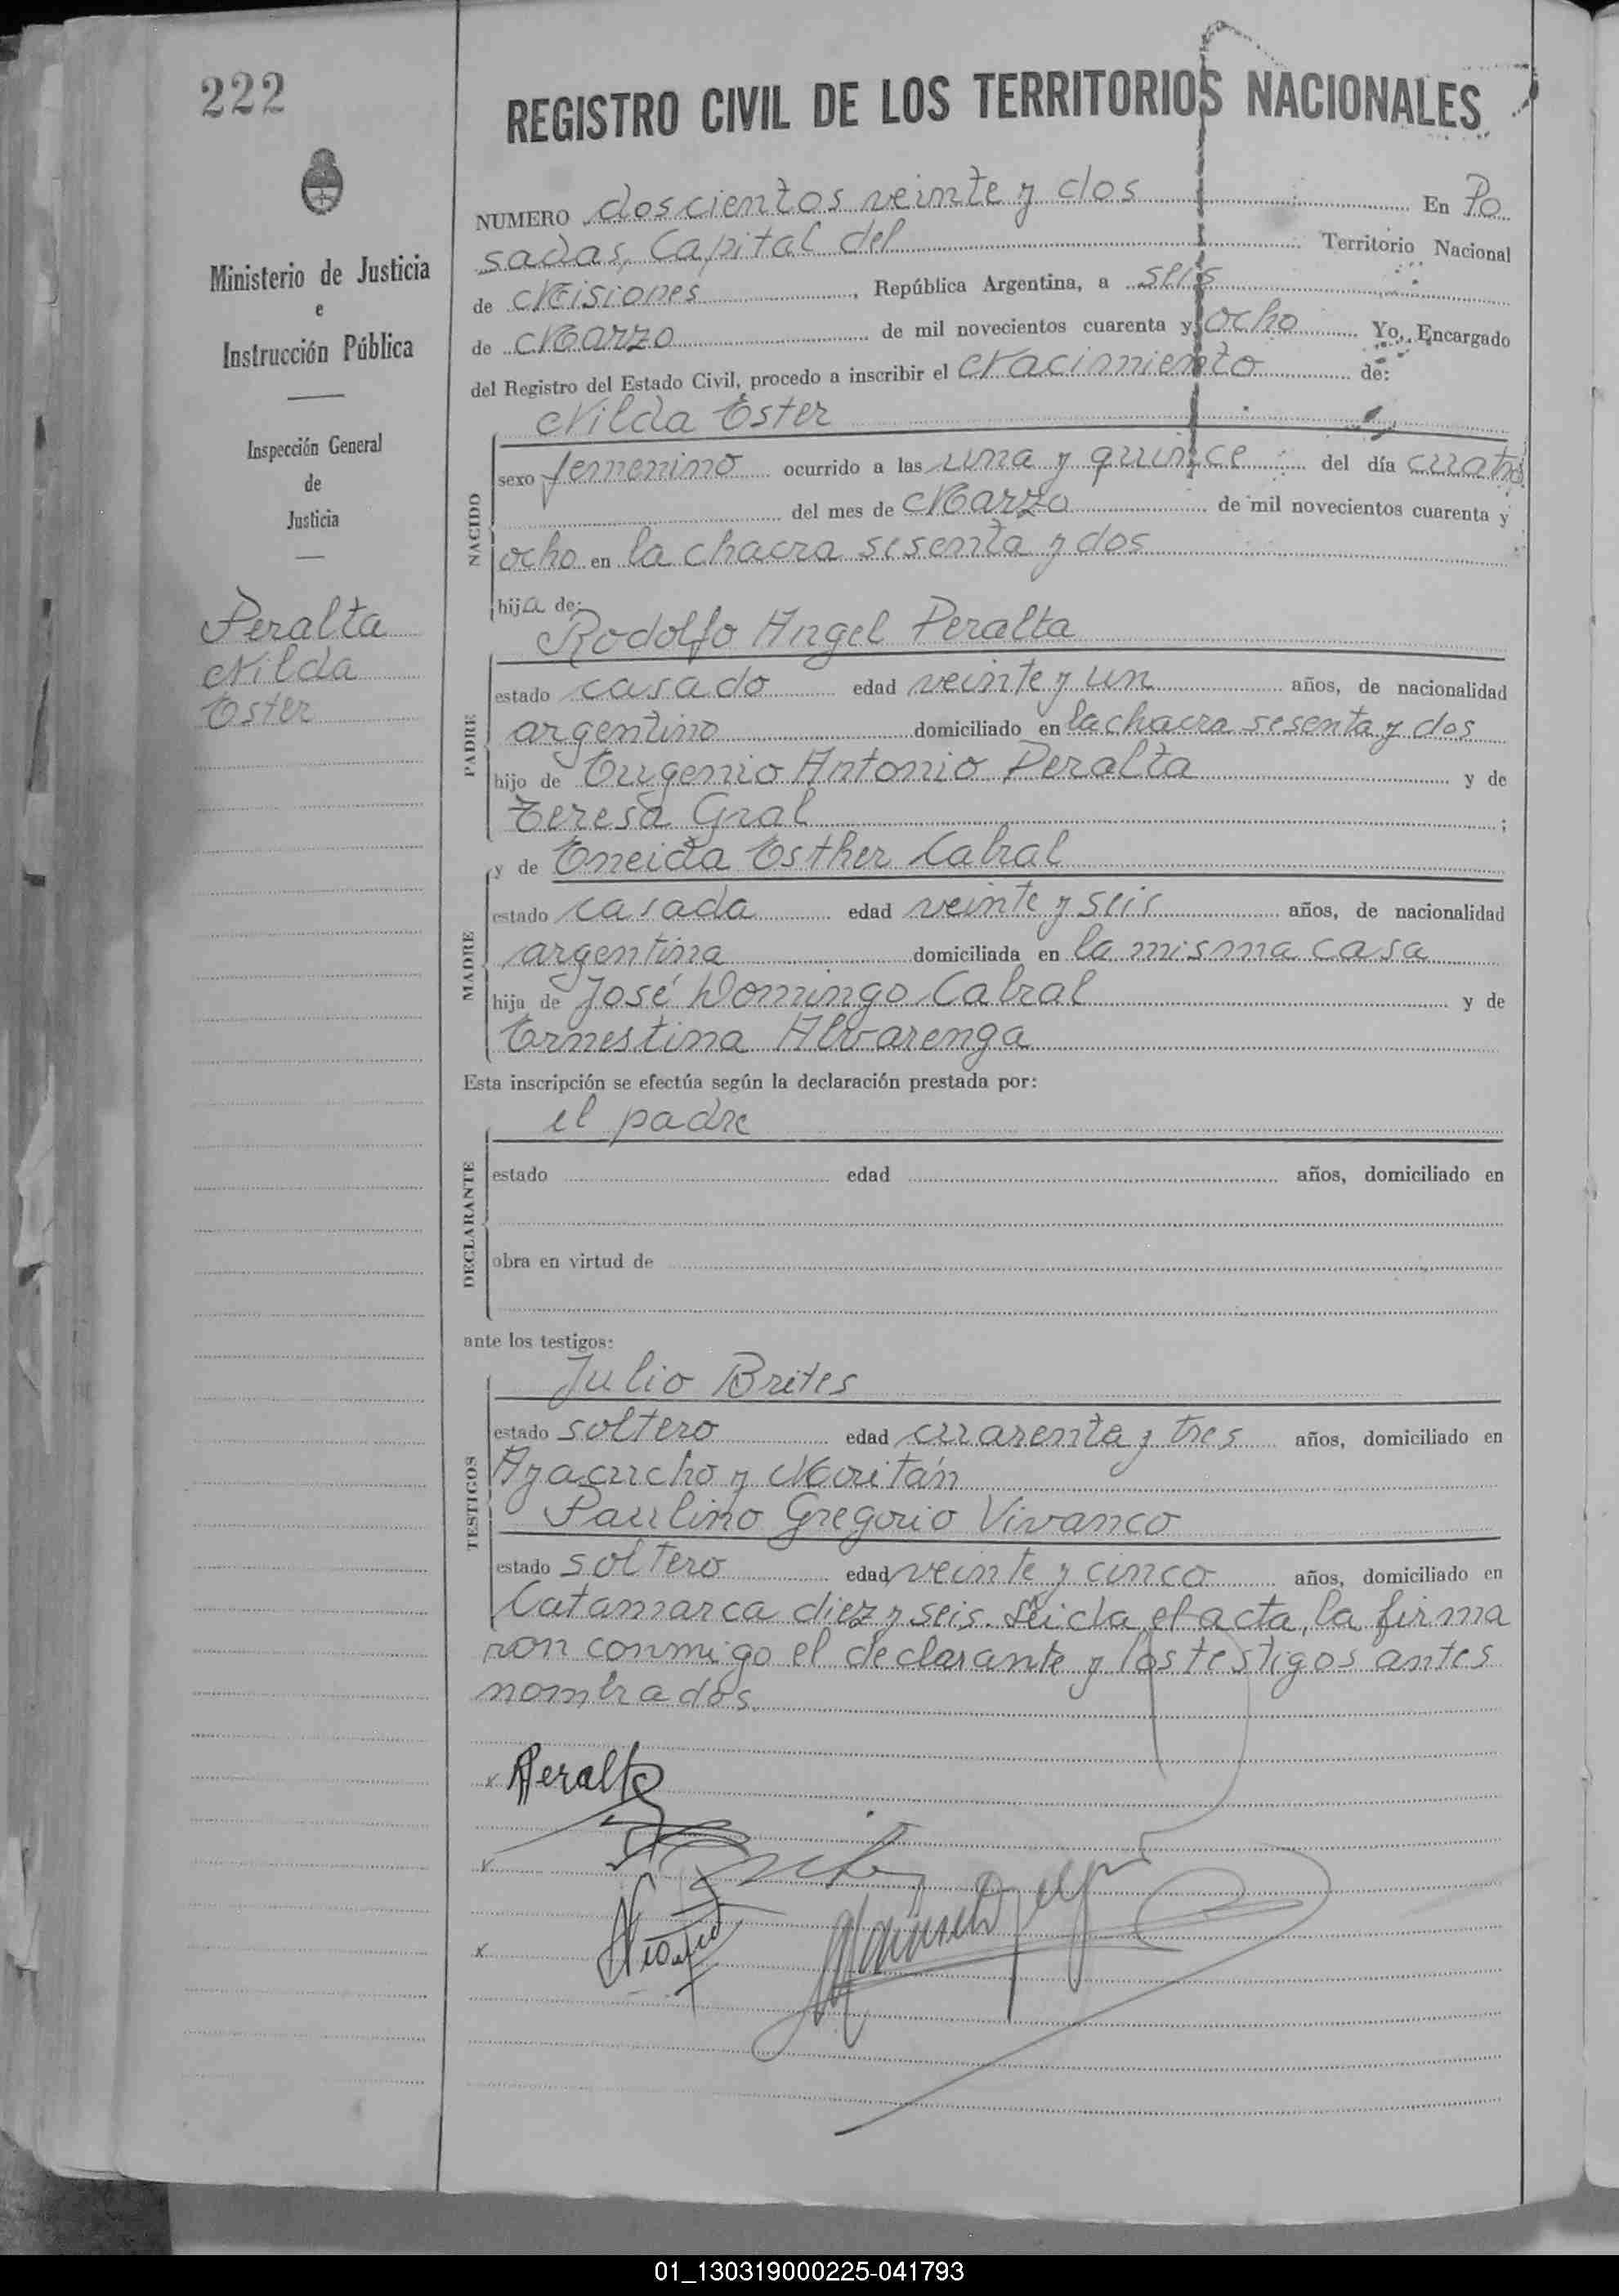 222
Ministerio de Justicia
e
Instrucción Pública
Inspección General
de
Justicia
Peralta
Nilda
Ester
REGISTRO CIVIL DE LOS TERRITORIOS NACIONALES
NUMERO doscientos veinte y dos En Po
sadas, Capital del Territorio Nacional
de Misiones, República Argentina, a seis
de Marzo de mil novecientos cuarenta y ocho Yo, Encargado
del Registro del Estado Civil, procedo a inscribir el Nacimiento de:
Nilda Ester
NACIDO
sexo femenino ocurrido a las una y quince del día cuatro
del mes de Marzo de mil novecientos cuarenta y
ocho en la chacra sesenta y dos
hija de:
Rodolfo Angel Peralta
PADRE
estado casado edad veinte y un años, de nacionalidad
argentino domiciliado en la chacra sesenta y dos
hijo de Eugenio Antonio Peralta y de
Teresa Gral;
y de Eneida Esther Cabral
MADRE
estado casada edad veinte y seis años, de nacionalidad
argentina domiciliada en la misma casa
hija de José Domingo Cabral y de
Ernestina Alvarenga
Esta inscripción se efectúa según la declaración prestada por:
el padre
DECLARANTE
estado edad años, domiciliado en
obra en virtud de
ante los testigos:
Julio Brites
TESTIGOS
estado soltero edad cuarenta y tres años, domiciliado en
Ayacucho y Moritán
Paulino Gregorio Vivanco
estado soltero edad veinte y cinco años, domiciliado en
Catamarca diez y seis. Leida el acta, la firma
ron conmigo el declarante y los testigos antes
nombrados.
Peralta
01_130319000225-041793